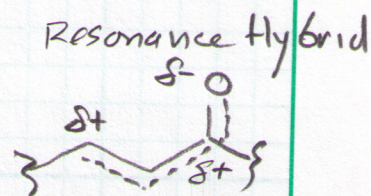 Resonance Hybrid
δ- O
δ+
δ+